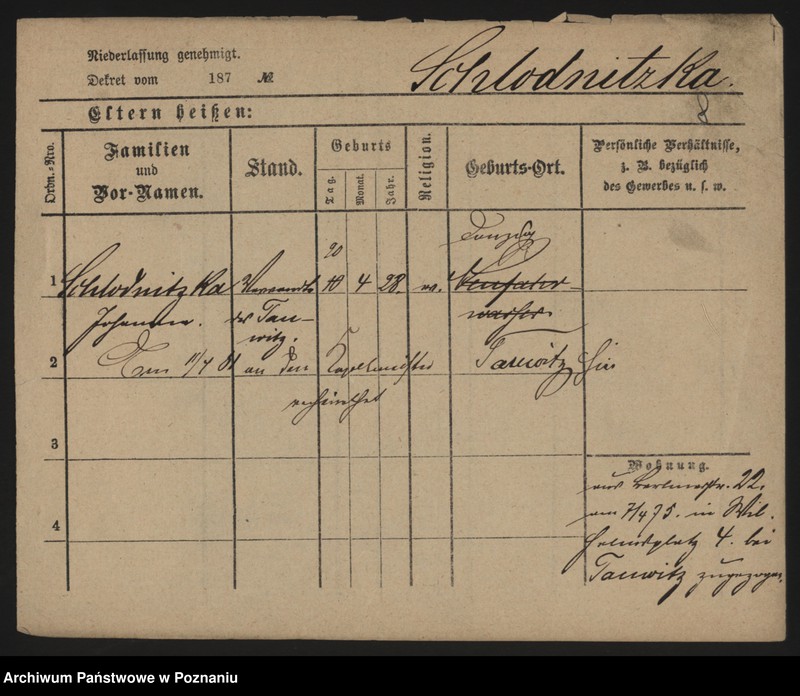 Niederlassung genehmigt.
Dekret vom 187 №
Schlodnitzka.
Eltern heißen:
Ordn.=Nro.
Familien
und
Vor=Namen.
Stand.
Geburts
Tag.
Monat.
Jahr.
Religion.
Geburts=Ort.
Persönliche Verhältnisse,
z. B. bezüglich
des Gewerbes u. s. w.
20
Danzig
1 Schlodnitzka Verwandte 10 4 28. ev. Neufahr-
Johanna. des Tau- wasser.
witz.
2 Den 11/4 81 an den Kapellmeister Tauwitz hier
verheirathet
3
Wohnung.
aus 22.
am 7/4 75. in Wil-
4
helmsplatz 4. bei
Tauwitz zugezogen.
Archiwum Państwowe w Poznaniu